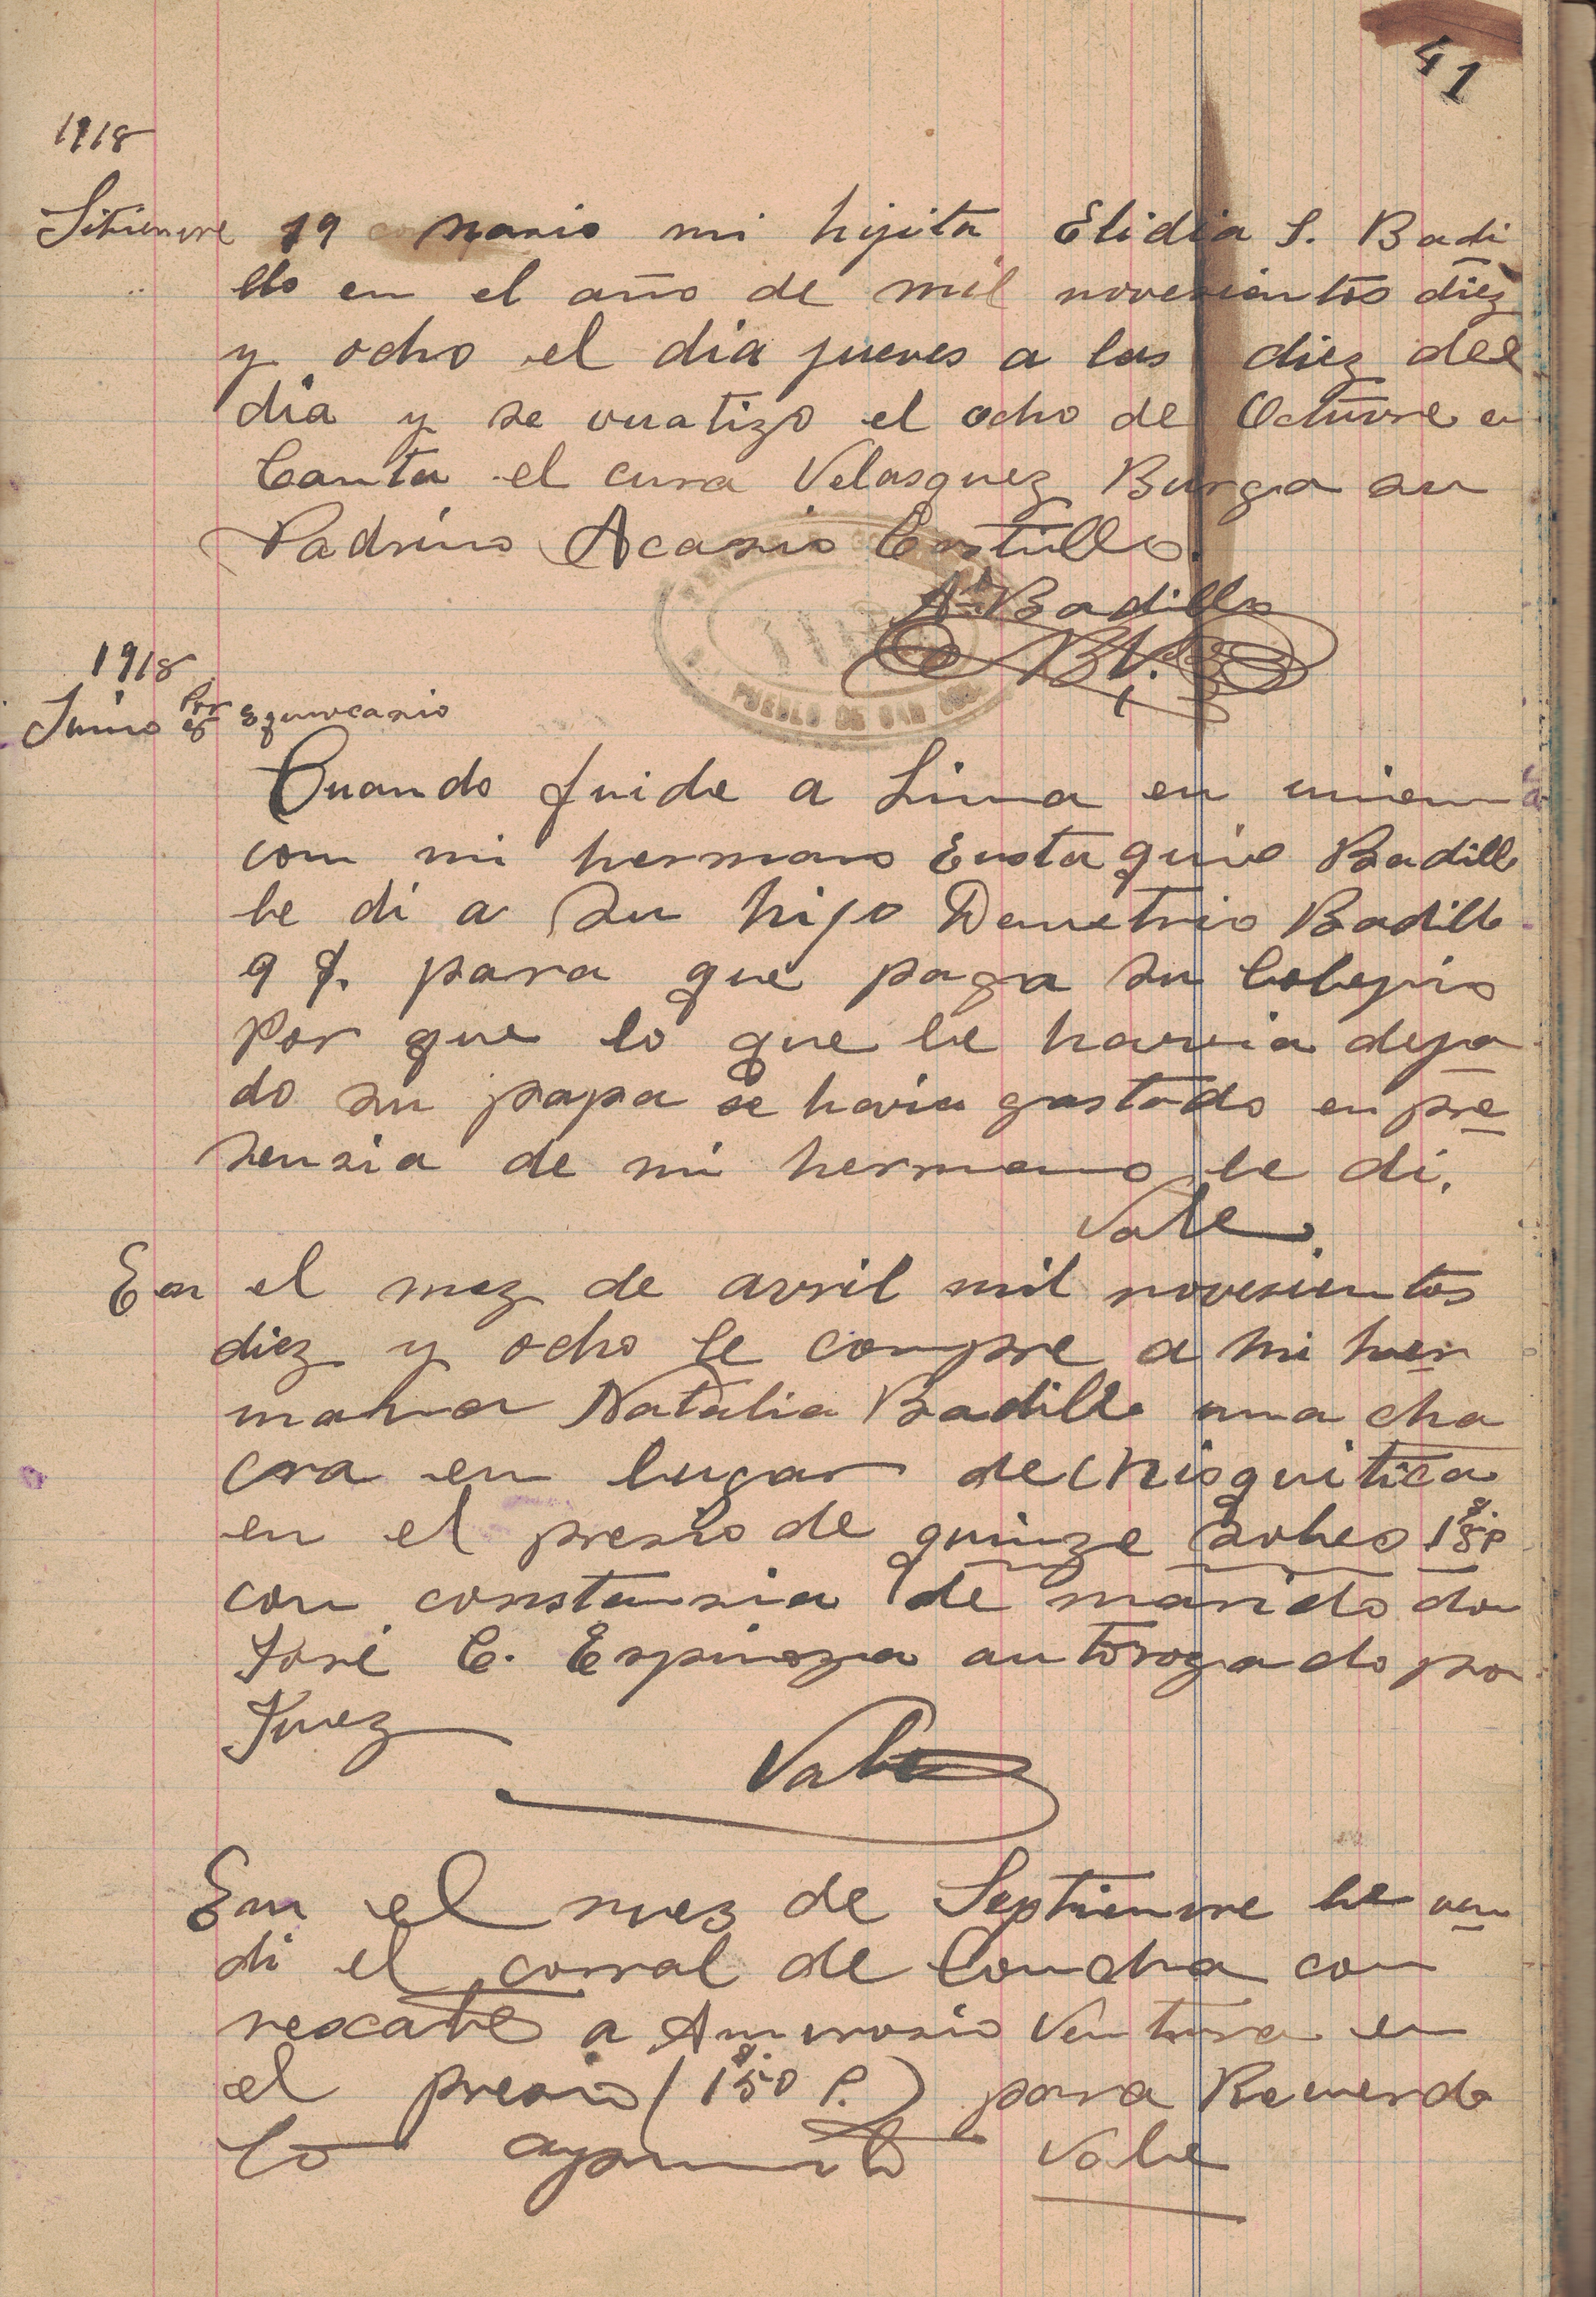 41
1918
Sitienvre 19 nasio mi hijita Elidia S. Badi
llo en el año de mil novesientos diez
y ocho el dia jueves a las diez del
dia y se vuatizo el ocho de Octuvre en
Canta el cura Velasquez Burga su
Padrino Acasio Castillo.
An Badillo
B V.
PUEBLO DE SAN
1918
Junio Por Equivocasio
Cuando fuide a Lima en union
con mi hermano Eustaquio Badillo
le di a su hijo Demetrio Badillo
9 S. para que paga su Colegio
Por que lo que le havia deja
do su papa se havia gastado en pre
sensia de mi hermano le di.
Vale
En el mez de avril mil novesientos
diez y ocho le compre a mi her
mana Natalia Badillo una cha
cra en lugar de Chisquitica
en el presio de quinze soles 15 S. P
con constansia de marido don
José C. Espinoza autorogado por
Juez
Vale
En el mez de Septienvre he ven
di el corral de Concha con
rescate a Amvrosio Ventura en
el presio (150 S. P.) para Recuerdo
lo apunto Vale